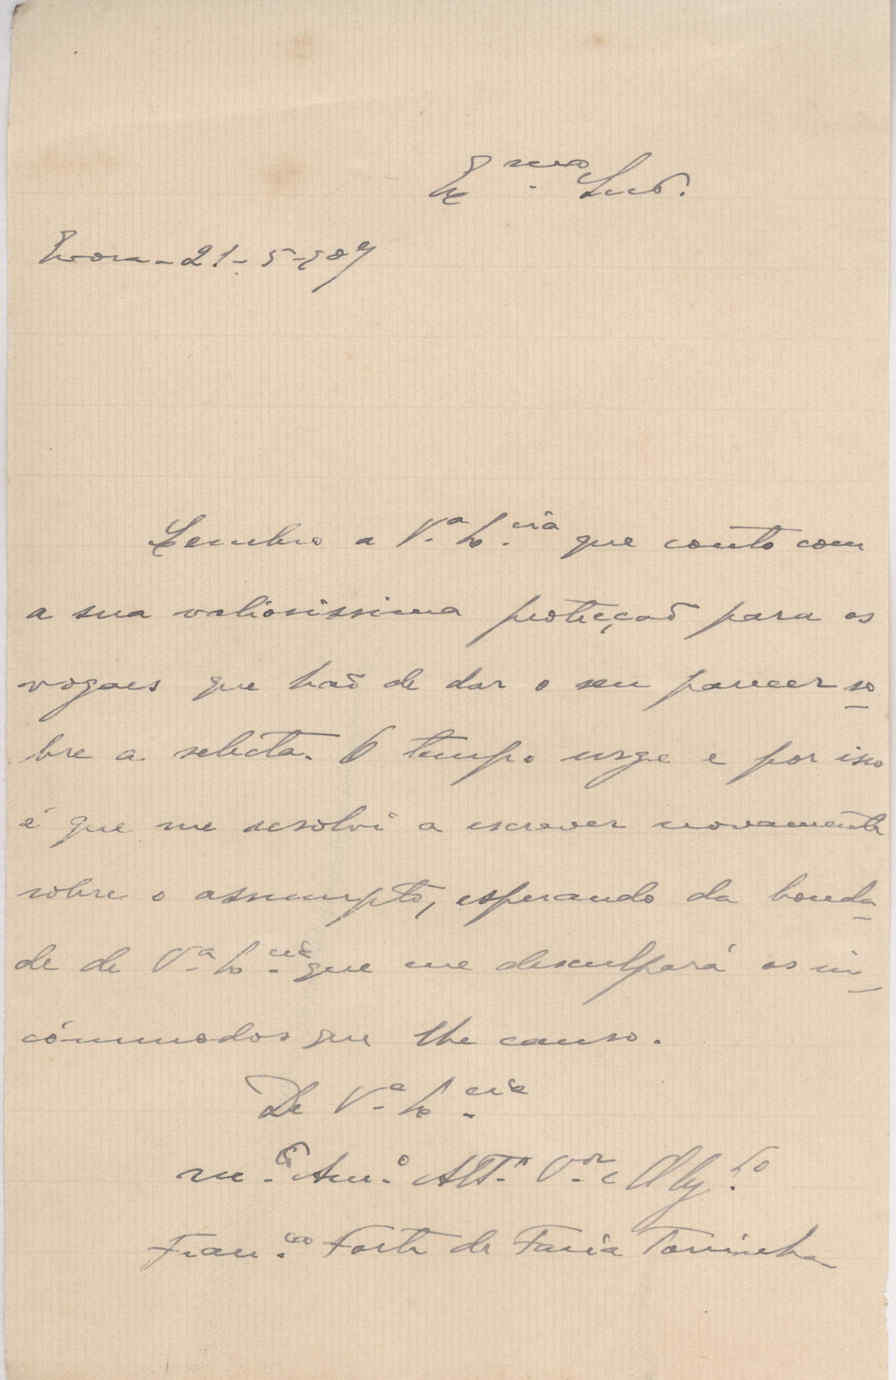 Ex.mo Snr.
Evora - 21 - 5 - 909
Lembro a V.a Ex.cia que conto com
a sua valiosissima protecçaõ para os
vogaes que haõ de dar o seu parecer so-
bre a selecta. O tempo urge e por isso
é que me resolvi a escrever novamente
sobre o assumpto, esperando da bonda-
de de V.a Ex.cia que me desculpará os in-
cómmodos que lhe causo.
De V.a Ex.cia
m.to Am.o Att.o V.or e Obg.do
Fran.co Forte de Faria Torrinha